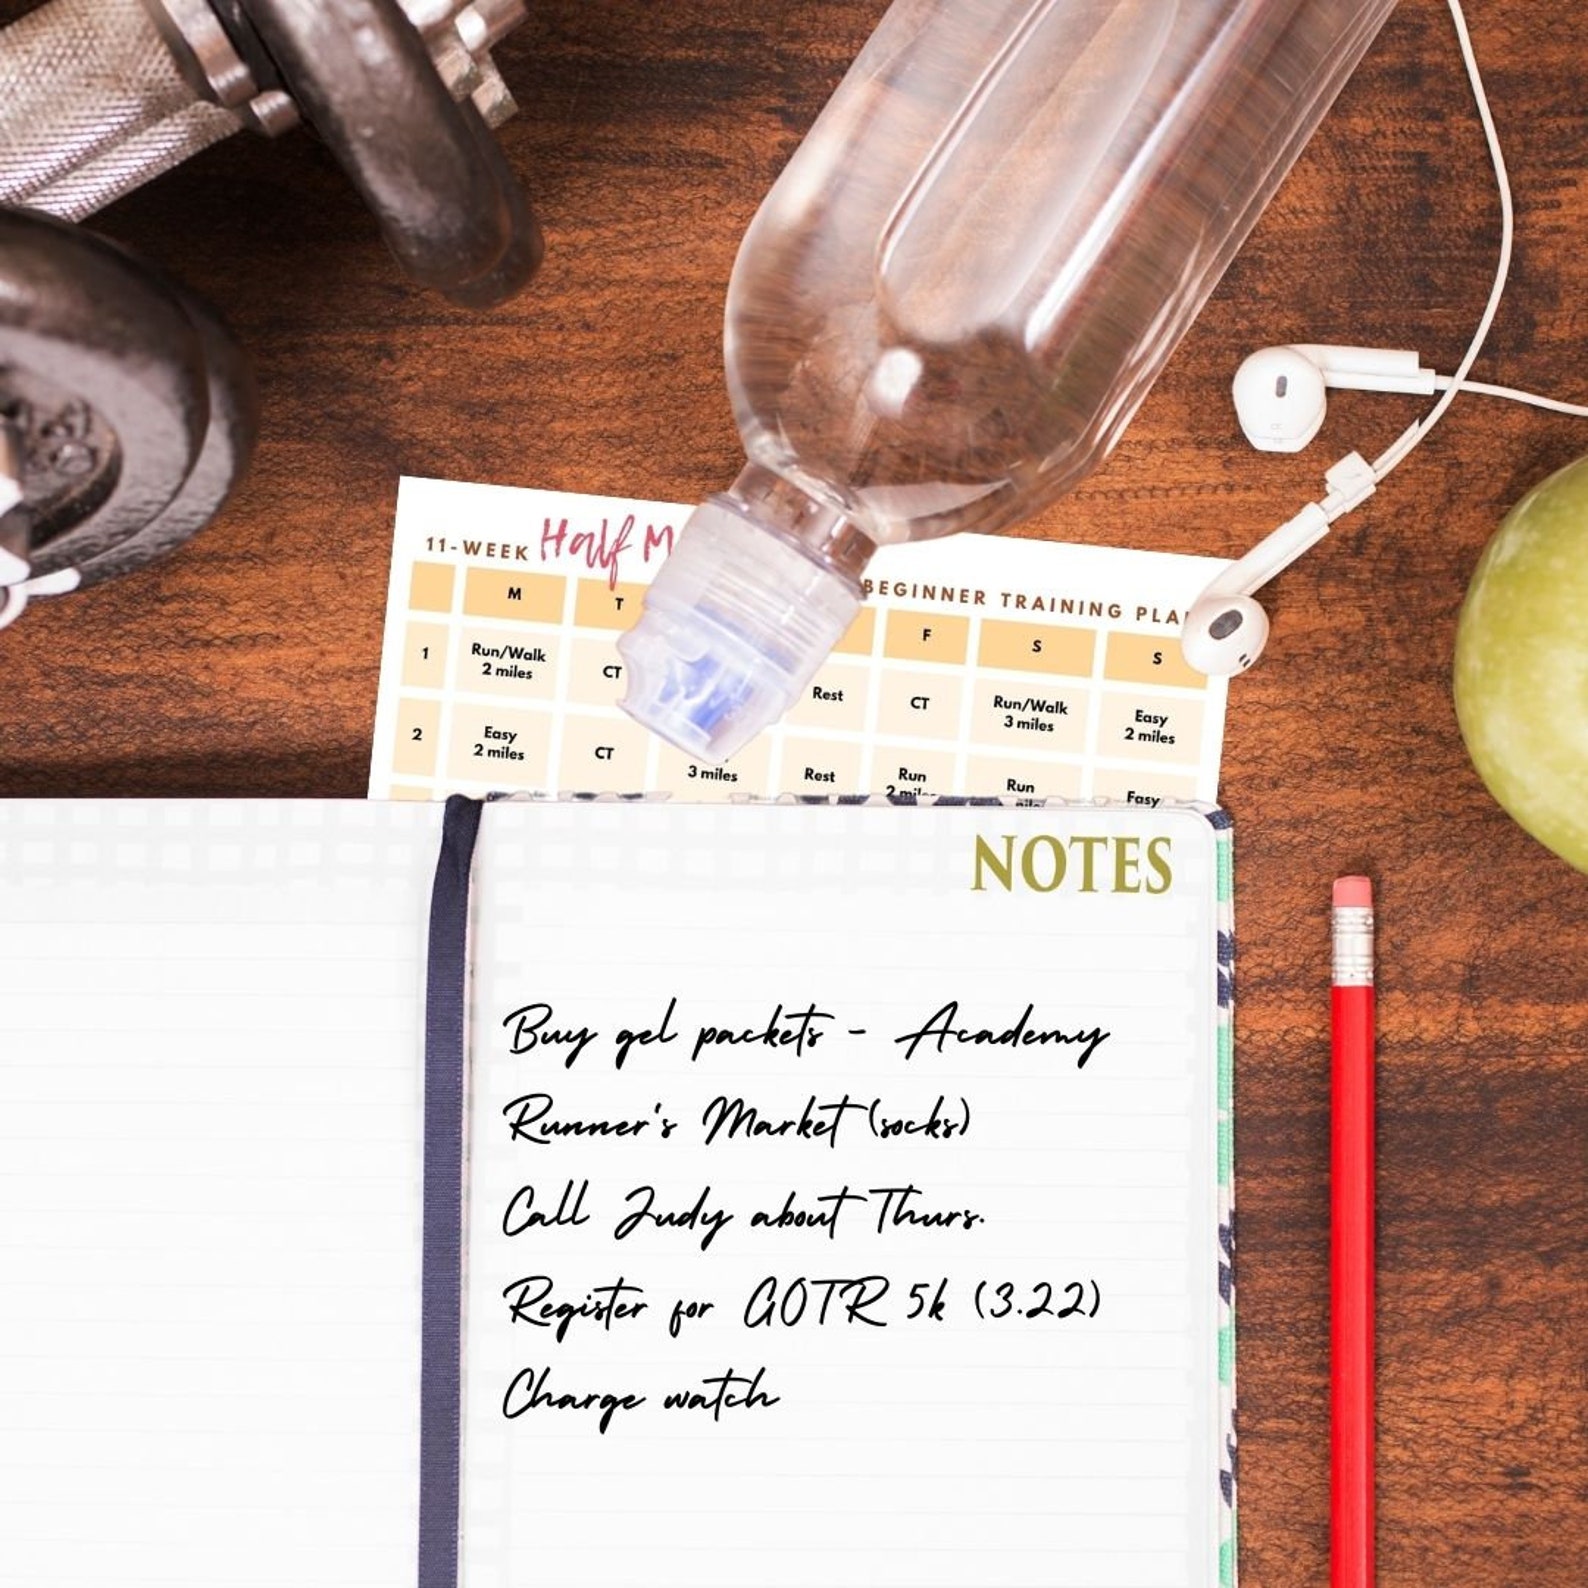 11-WEEK Half BEGINNER TRAINING
M T F S S
1 Run/Walk 2 miles CT Rest CT Run/Walk 3 miles Easy 2 miles
2 Easy 2 miles CT 3 miles Rest Run Run Easy
NOTES
Buy gel packets - Academy
Runner's Market (socks)
Call Judy about Thurs.
Register for GOTR 5k (3.22)
Charge watch